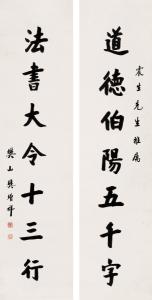 道德伯陽五千字
震生先生雅屬
法書大令十三行
樊山樊增祥